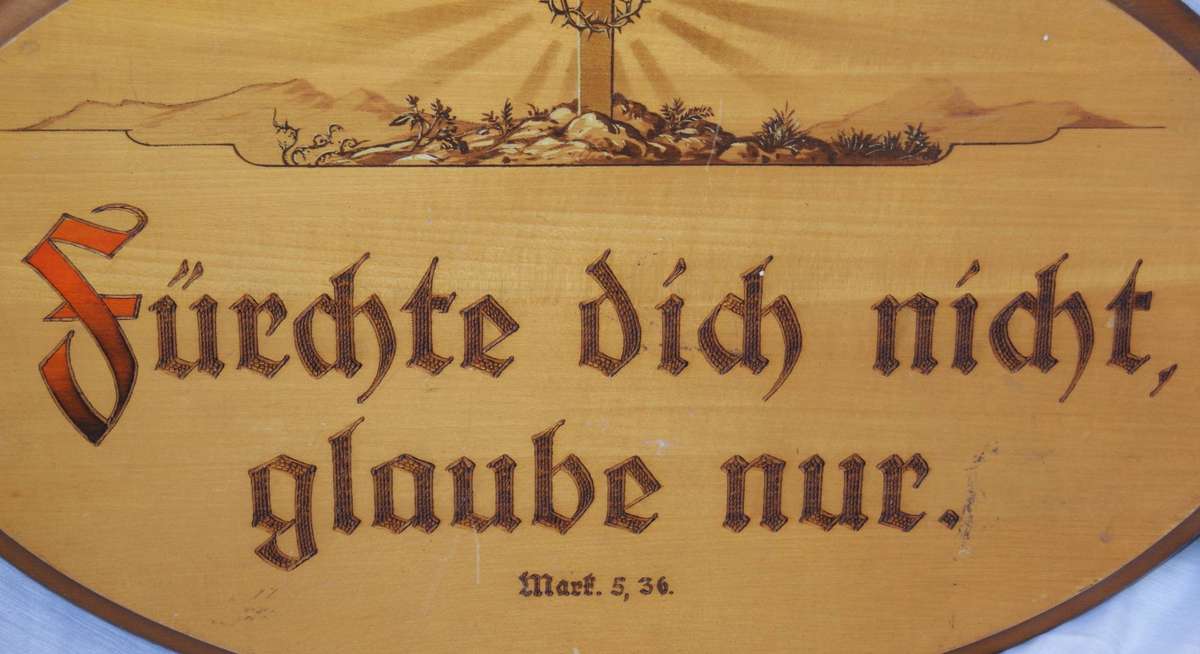 Fürchte dich nicht,
glaube nur.
Mark. 5, 36.